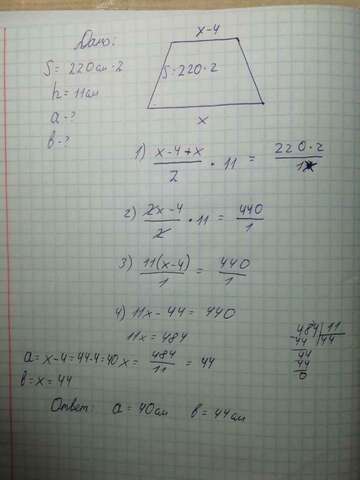 Дано:
S = 220см·2
h = 11см
a - ?
b - ?
x-4
S=220·2
x
1) x-4+x / 2 · 11 = 220·2 / 1
2) 2x-4 / 2 · 11 = 440 / 1
3) 11(x-4) / 1 = 440 / 1
4) 11x - 44 = 440
11x = 484
a = x-4 = 44-4=40 x = 484 / 11 = 44
b = x = 44
484 | 11
44 | 44
44
44
0
Ответ: a = 40см b = 44см